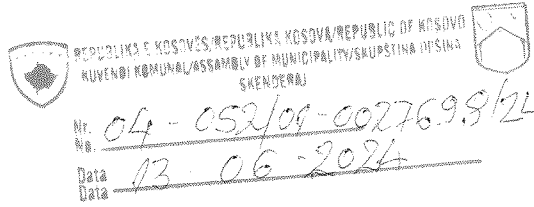 REPUBLIKA E KOSOVËS/REPUBLIKA KOSOVA/REPUBLIC OF KOSOVO
KUVENDI KOMUNAL/ASSAMBLY OF MUNICIPALITY/SKUPŠTINA OPŠINA
SKENDERAJ
Nr.
No. 04-052/01-0027698/24
Data
Data 13 06-2024